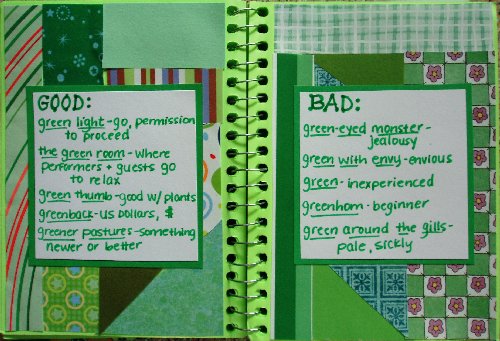 GOOD:
green light-go, permission
to proceed
the green room-where
performers + guests go
to relax
green thumb-good w/plants
greenback-US Dollars, $
greener pastures-something
newer or better
BAD:
green-eyed monster-
jealousy
green with envy-envious
green-inexperienced
greenhorn-beginner
green around the gills-
pale, sickly